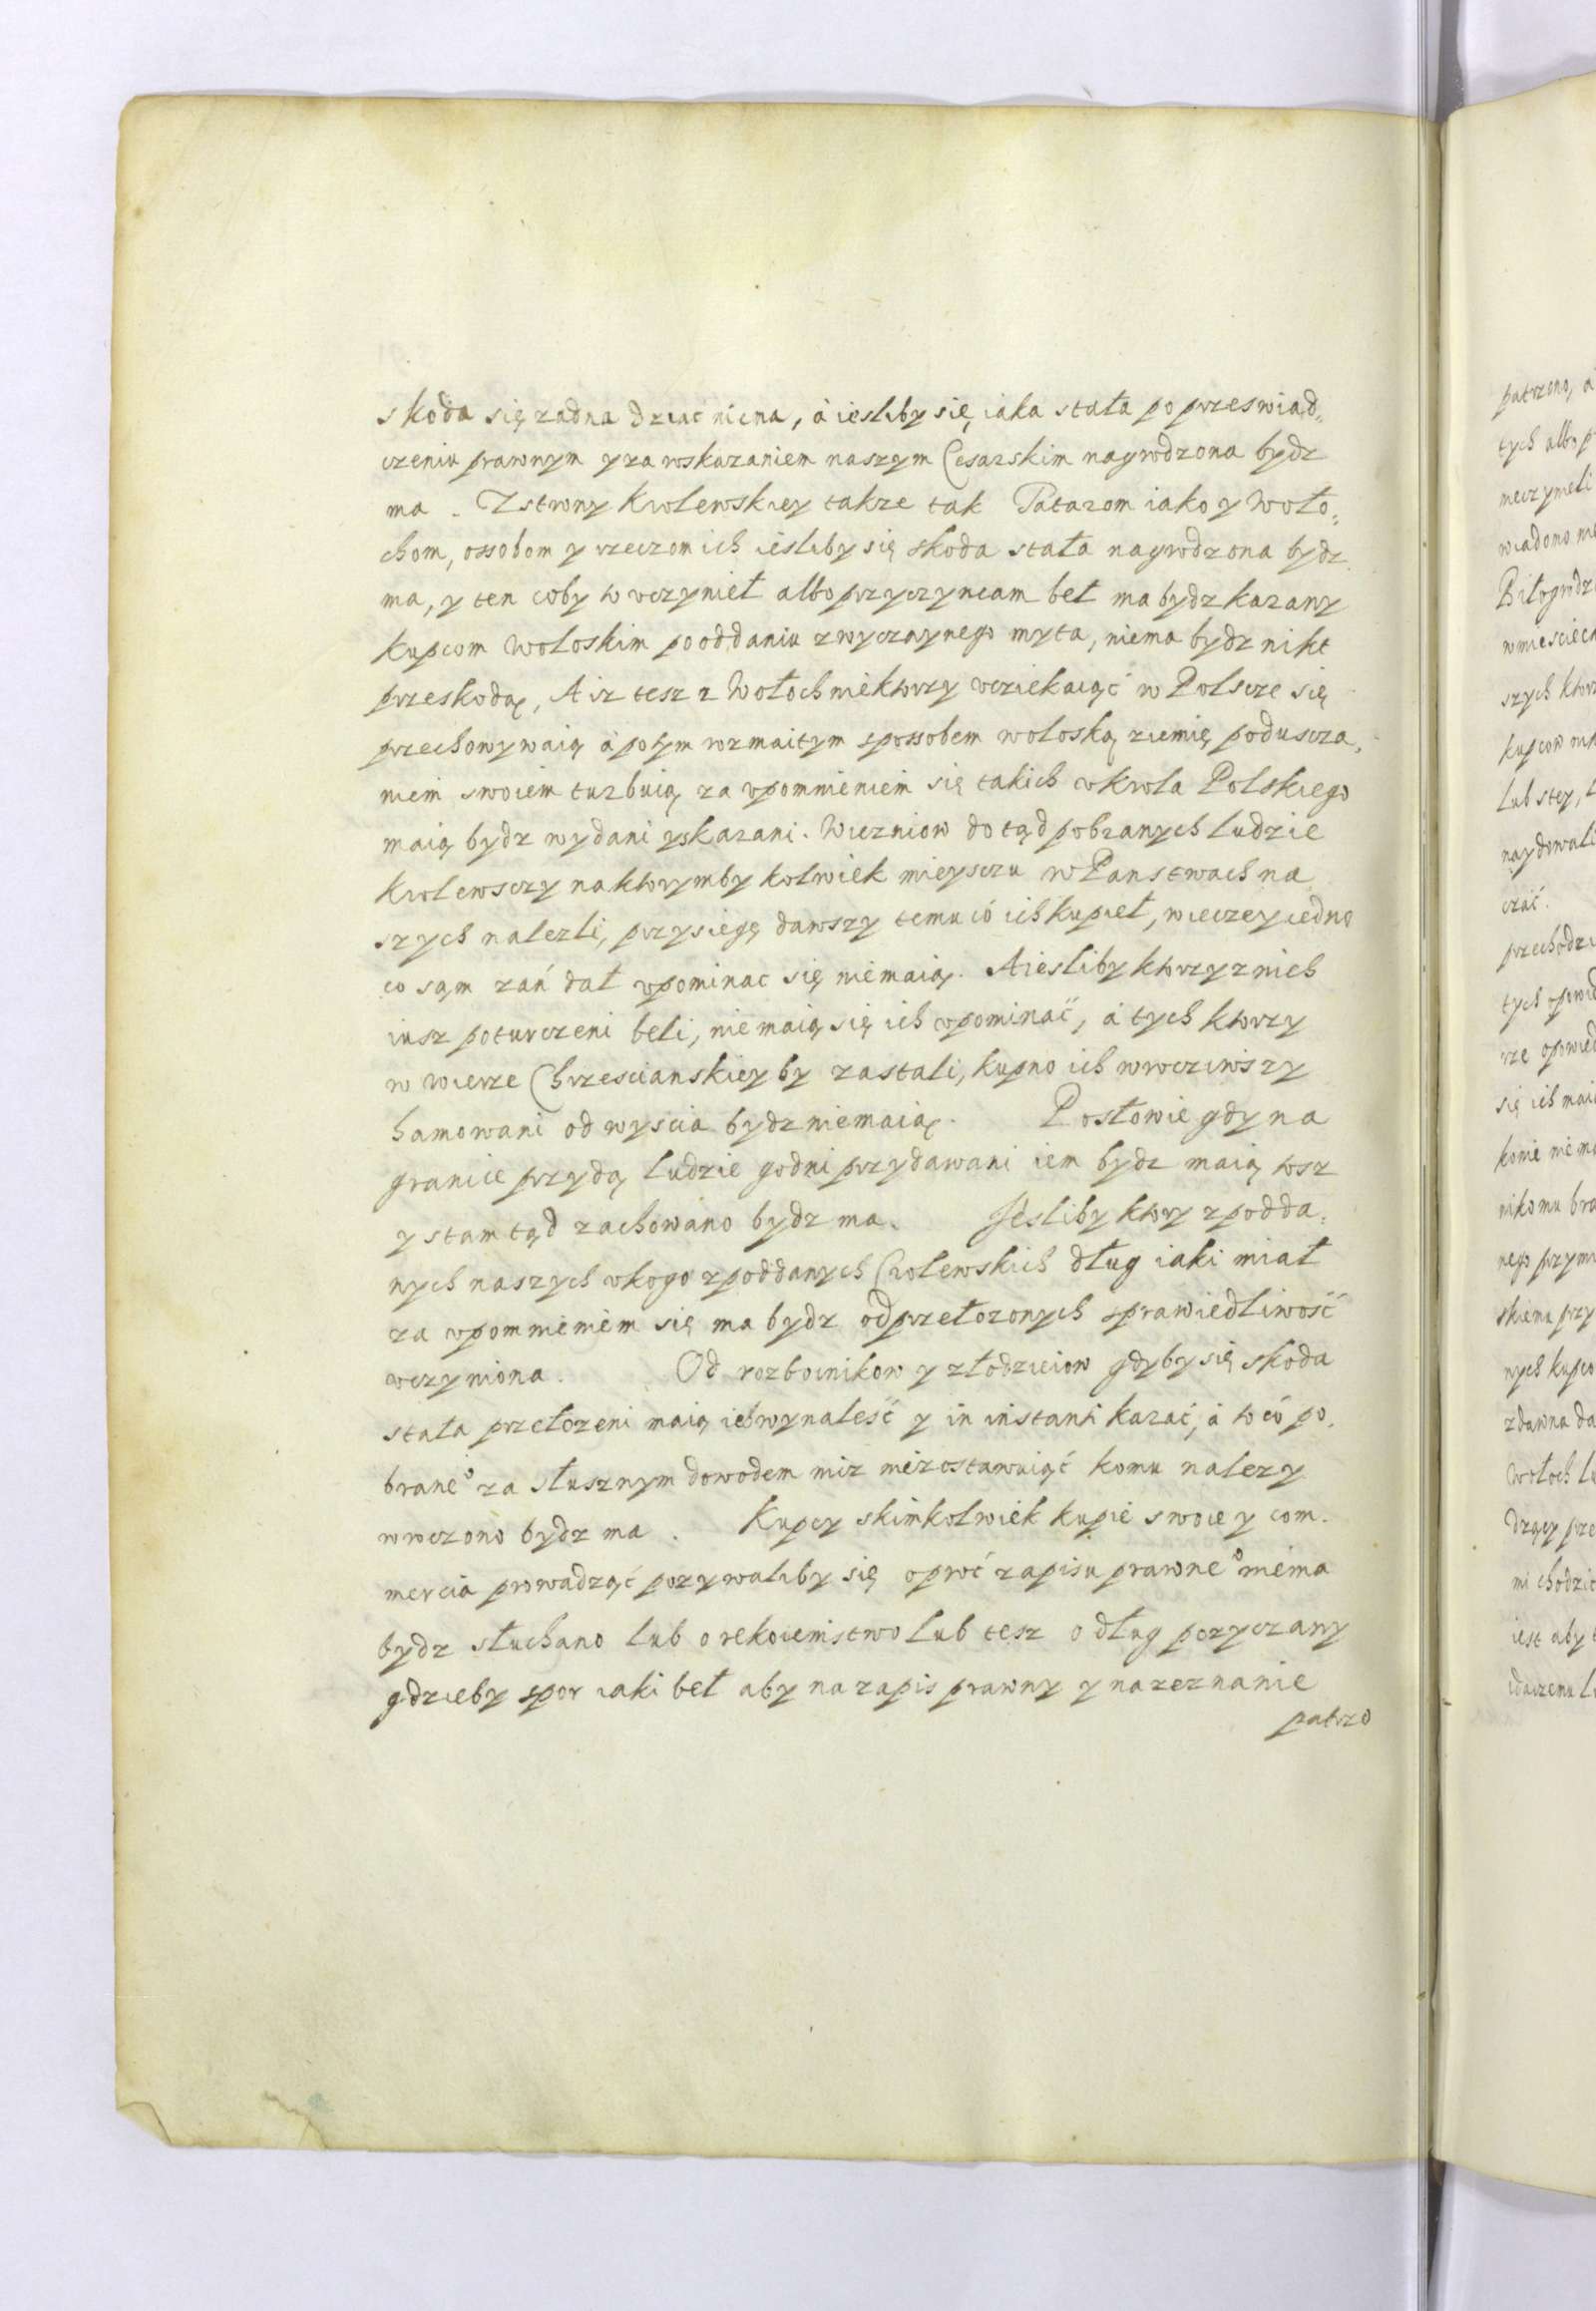 skoda się zadna dziać nicna, á iesliby się, iaka stała po przeswiad„
czeniu prawnym y za wskazaniem naszym Cesarskim nagrodzona bydz
ma. Zstrony Krolewskiey takze tak Tatarom iako y Woło„
chom, ossobom y rzeczom ich iesliby się skoda stała nagrodzona bydz
ma, y ten coby to vczynieł albo przyczyncam beł ma bydz kazany
Kupcom Wołoskim po oddaniu zwyczaynego myta, niema bydz nikt
przeskodą, A isz tesz z Wołoch niektorzy vciekaiąć w Polscze się
przechowywaią á potym rozmaitym spossobem wołoską ziemię poduscza„
niem swoiem turbuią za vpomnieniem się takich v Krola Polskiego
maią bydz wydani y skazani. Wiezniow do tąd pobranych ludzie
Krolewsczy na ktorymby kolwiek mieysczu w Panstwach na
szych nalezli, przysięgę dawszy temu có ich kupieł, wieczey iedno
co sąm zań dał vpominac się niemaią. A iesliby ktorzy z nich
iusz poturczeni beli, nie maią się ich vpominać, á tych ktorzy
w wierze Chrzescianskiey by zastali, kupno ich wrocziwszy
hamowani od wyscia bydz niemaią. Posłowie gdy na
granice przydą ludzie godni przydawani iem bydz maią tosz
y stam tąd zachowano bydz ma. Jesliby ktory z podda„
nych naszych v kogo z poddanych Crolewskich dług iaki miał
za vpomnieniem się ma bydz od przełozonych sprawiedliwość
vczyniona. Od rozboinikow y złodzieiow gdyby się skoda
stała przełozeni maią ich wynaleść y in instanti kazać, á to có po„
braneᵒ za słusznym dowodem niz niezostawuiąć komu nalezy
wroczono bydz ma. Kupcy skimkolwiek kupie swoie y com„
mercia prowadząć pozywaliby się oproć zapisu prawneᵒ niema
bydz słuchano lub o rekoiemistwo lub tesz o dług pozyczany
gdzieby spor iaki beł aby na zapis prawny y na zeznanie
patrzo
patrzono, á
tych albo p
nieczyneli
wiadono
Biłogrodz
w miescie
szych ktorz
kupcow
lub stey, l
naydowali
czać.
przechodz
tych opowie
rze opowied
się ich maią
konie nie ma
nikomu bra
nego przym
skiemu przy
nych kupco
zdawna da
Wołoch lu
drący prze
mi chodzic
iest aby t